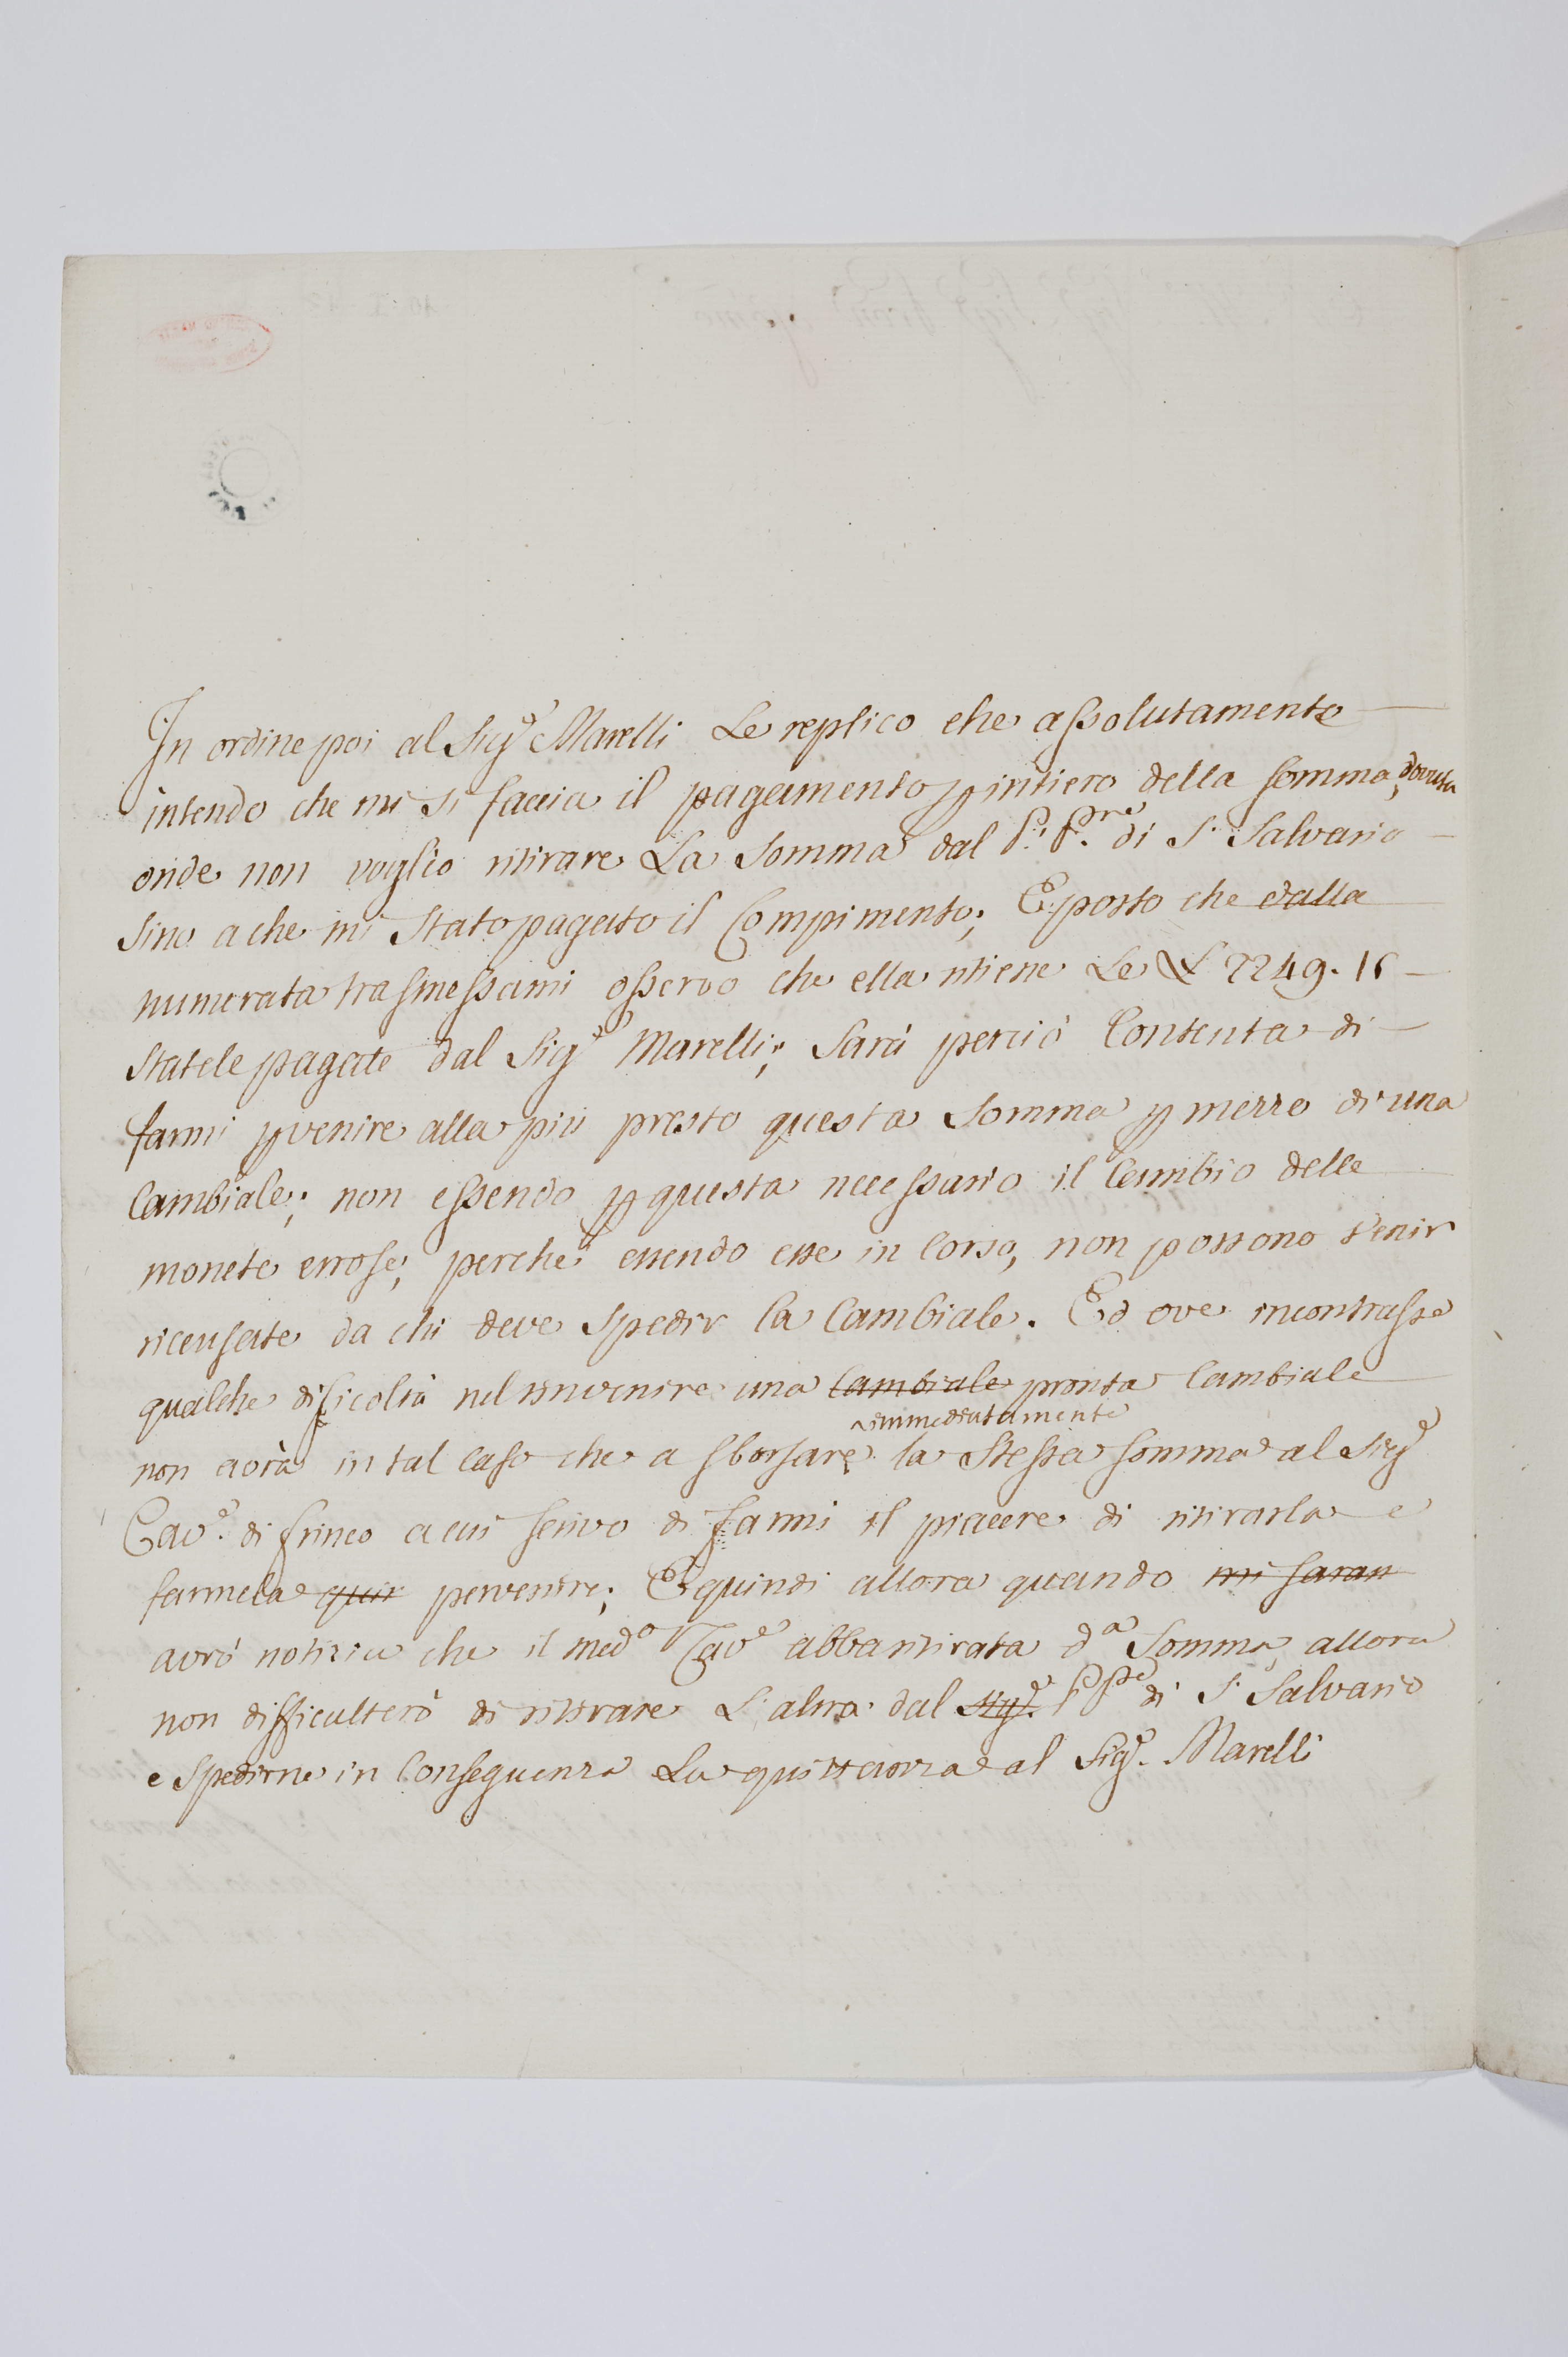 In ordine poi al Sig.e Marelli Le replico che assolutamente
intendo che mi si faccia il pagamento p intiero della somma dovuta,
onde non voglio ritirare La Somma dal P. P.re di S. Salvario
Sino a che mi Stato pagato il Compimento; E posto che dalla
numerata trasmessami osservo che ella ritiene Le L 2249. 15
Statele pagate dal Sig.e Marelli; Sarà perciò Contenta di
farmi pvenire alla più presto questa Somma p mezzo di una
Cambiale; non essendo p questa necessario il Cambio delle
monete erose; perche essendo esse in Corso, non possono venir
ricusate da chi deve Spedir la Cambiale. Ed ove incontrasse
qualche dificoltà nel rinvenire una Cambiale pronta Cambiale
immediatamente
non avrà in tal Caso che a sborsare la Stessa somma al Sig.e
Cav.e di frinco a cui scrivo di farmi il piacere di ritirarla e
farmela quir pervenire; E quindi allora quando mi saran
avrò notizia che il med.o Cav.e abba ritirata d.a Somma, allora
non difficulterò di ritirare L'altra dal Sig.e P. P.re di S. Salvario
e Spedirne in Conseguenza La quittanza al Sig.e Marelli